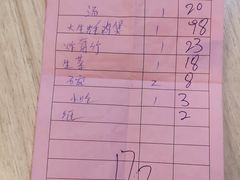 汤 1 20
大生蚝肉煲 1 98
1 23
生菜 1 18
2 8
小吃 1 3
纸 2
172